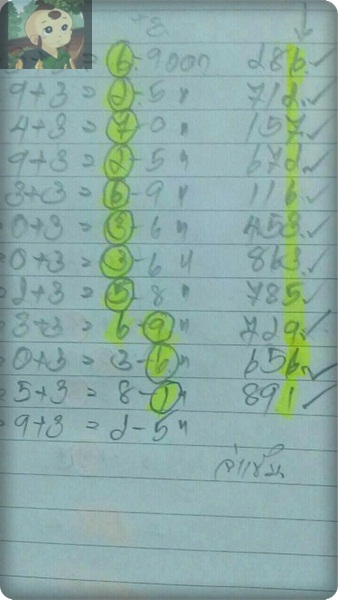 3+3 = 6-9 ออก 286 ✓
9+3 = 2-5 " 712 ✓
4+3 = 7-0 " 157 ✓
9+3 = 2-5 " 672 ✓
3+3 = 6-9 " 116 ✓
0+3 = 3-6 " 453 ✓
0+3 = 3-6 " 863 ✓
2+3 = 5-8 " 785 ✓
3+3 = 6-9 " 729 ✓
0+3 = 3-6 " 656 ✓
5+3 = 8-1 " 891 ✓
9+3 = 2-5 "